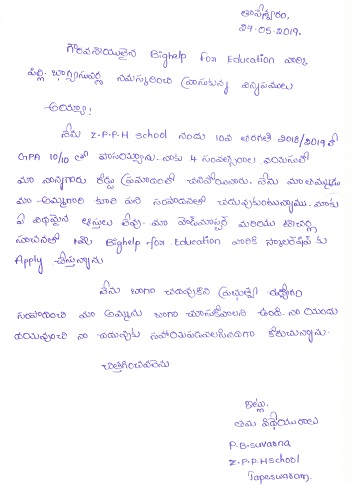 తాపేశ్వరం,
27-05-2019.
గౌరవనీయులైన Bighelp For Education వారికి
పల్లి. భాగ్యసువర్ణ నమస్కరించి వ్రాసుకున్న విన్నపములు
అయ్యా!
నేను Z.P.P.H school నందు 10వ తరగతి 2018/2019లో
GPA 10/10 తో పాసయ్యాను. నాకు 4 సంవత్సరాల వయసులో
మా నాన్నగారు రోడ్డు ప్రమాదంలో చనిపోయినారు. నేను మా తమ్ముడు
మా అమ్మగారి కూలి పని సంపాదనతో చదువుకుంటున్నాము. మాకు
ఏ విధమైన ఆస్తులు లేవు. మా హెడ్‌మాస్టర్ మరియు టీచర్ల
సూచనతో నేను Bighelp for Education వారికి స్కాలర్‌షిప్ కు
Apply చేస్తున్నాను
నేను బాగా చదువుకుని ప్రభుత్వ ఉద్యోగం
సంపాదించి మా అమ్మను బాగా చూసుకోవాలని ఉంది. నా యందు
దయవుంచి నా చదువుకు సహాయపడవలసినదిగా కోరుచున్నాను.
చిత్తగించవలెను
ఇట్లు,
తమ విధేయురాలు
P.B.suvarna
Z.P.P.H school
Tapeswaram.